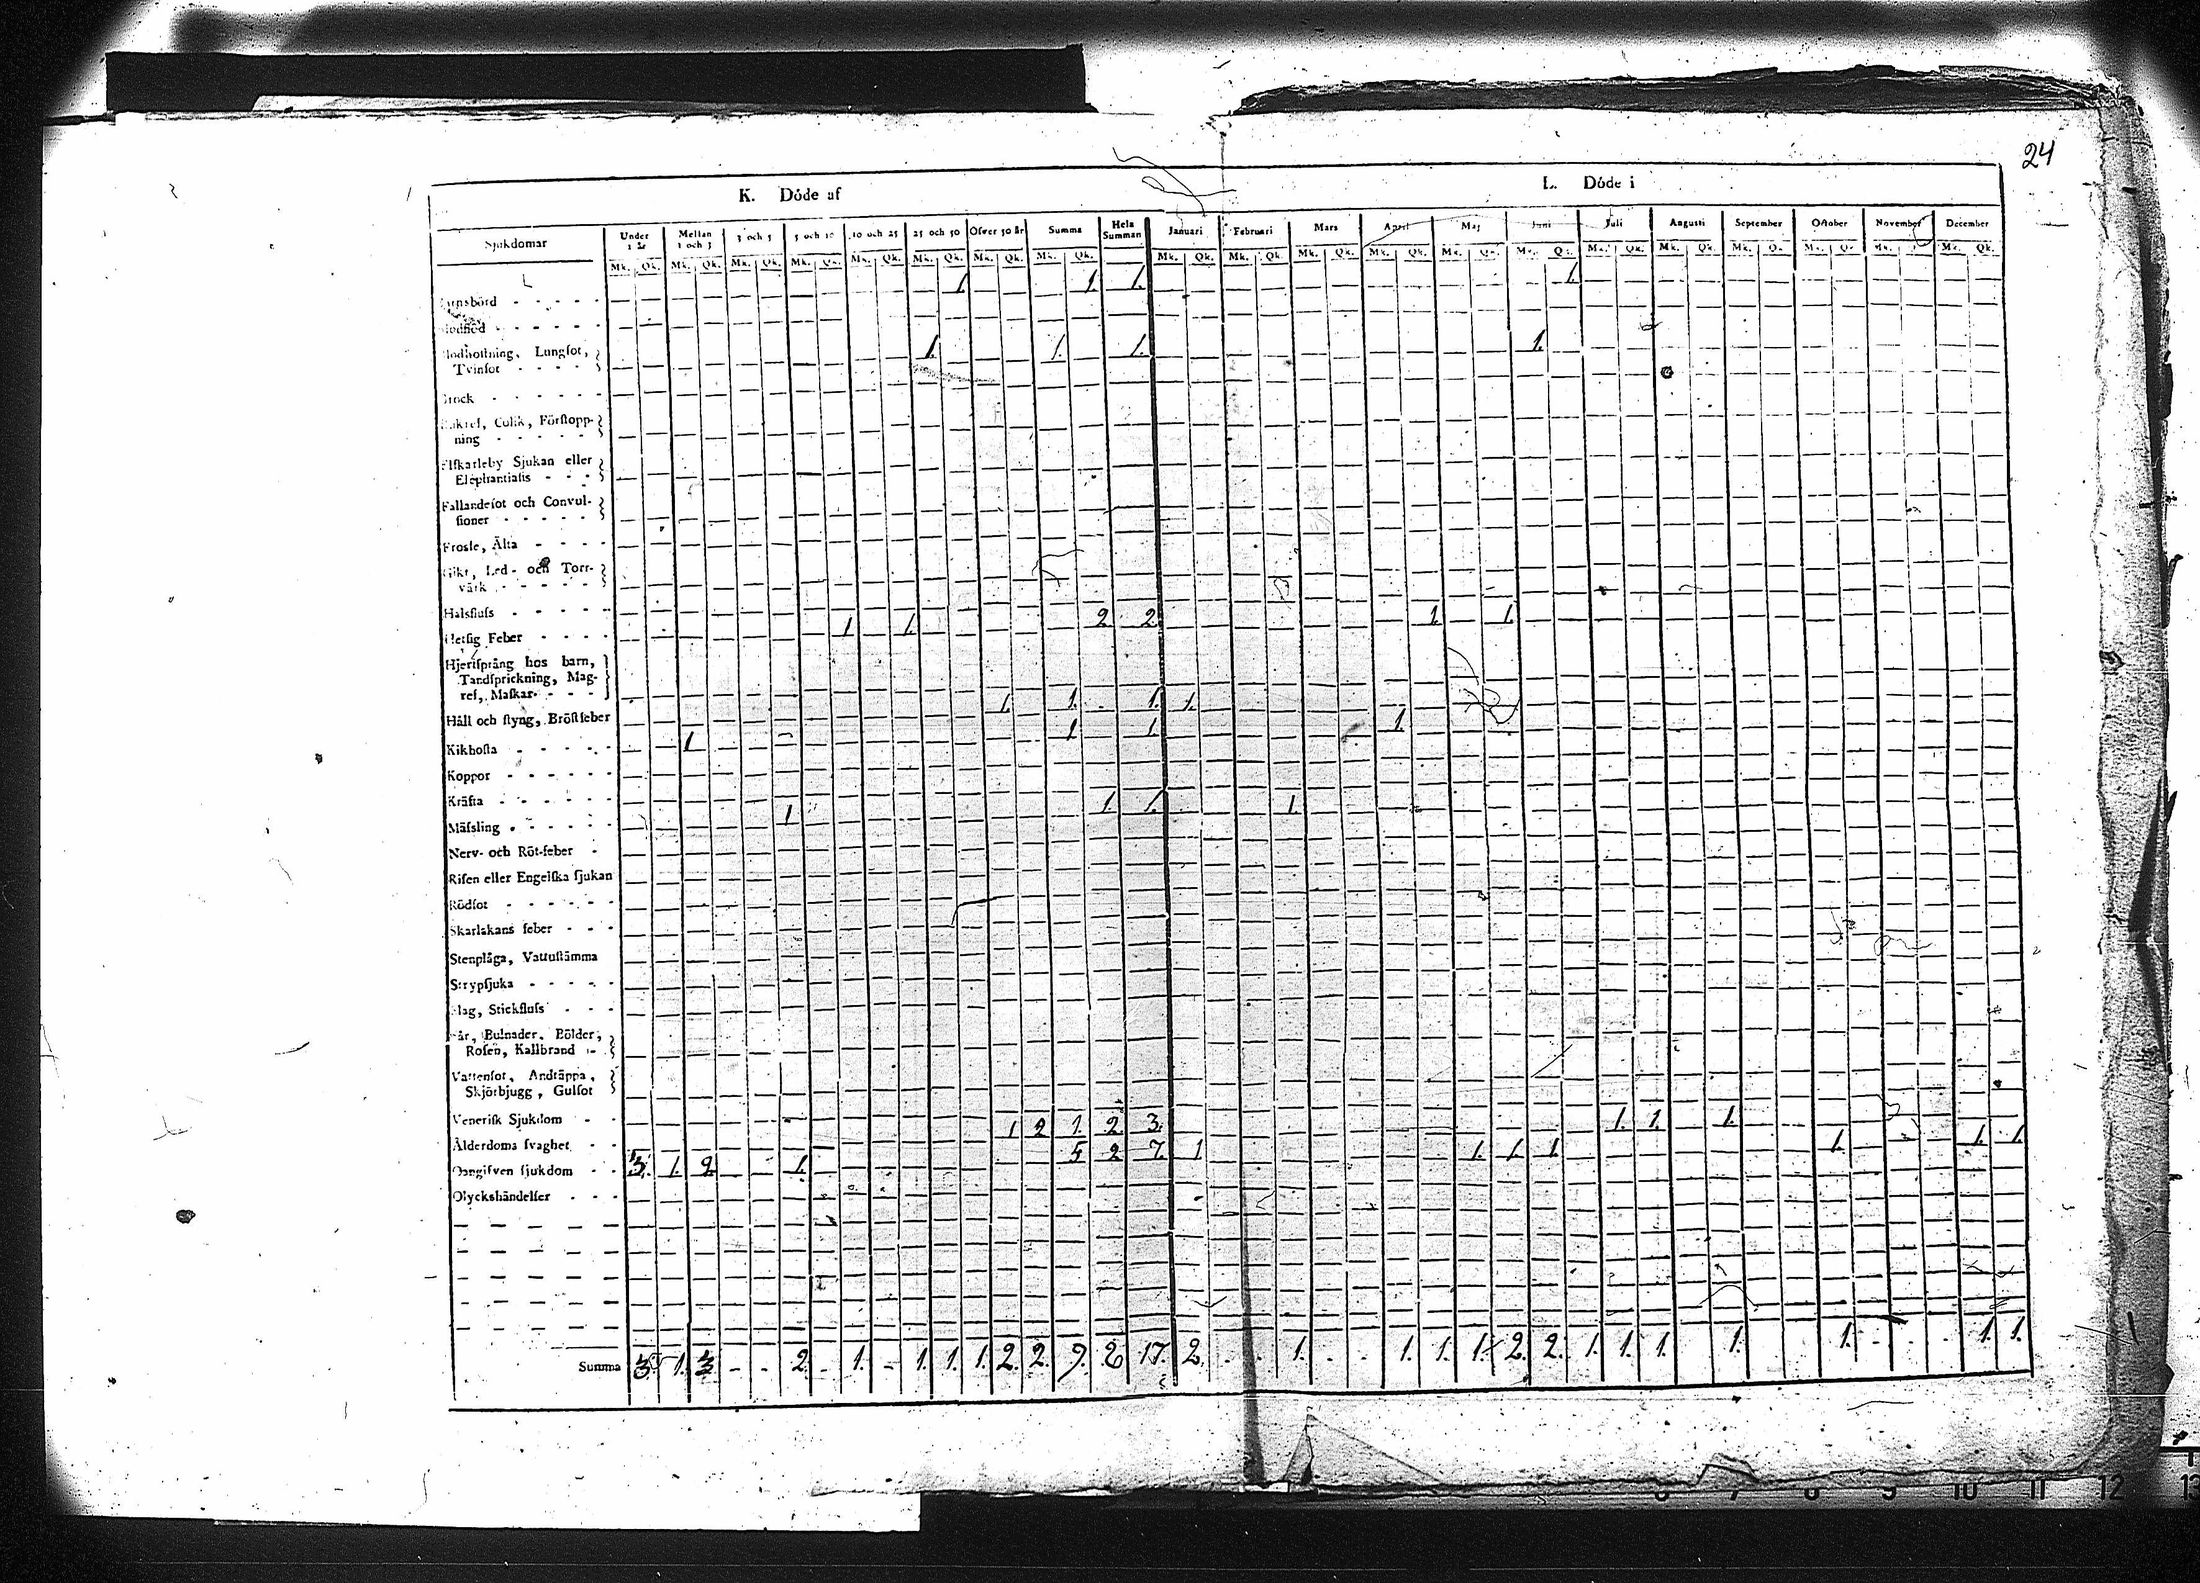 24
K. Döde af L. Döde i
Sjukdomar Under 1 år Mellan 1 och 3 3 och 5 5 och 10 10 och 25 25 och 50 Öfver 50 år Summa Hela Summan Januari Februari Mars April Maj Juni Juli Augusti September October November December
Mk. Qk. Mk. Qk. Mk. Qk. Mk. Qk. Mk. Qk. Mk. Qk. Mk. Qk. Mk. Qk. Mk. Qk. Mk. Qk. Mk. Qk. Mk. Qk. Mk. Qk. Mk. Qk. Mk. Qk. Mk. Qk. Mk. Qk. Mk. Qk. Mk. Qk. Mk. Qk.
1. 1. 1. 1.
Lungſot,
Tvinſot 1. 1. 1. 1.
Colik, Förſtopp-
ning
Elſkarleby Sjukan eller
Elephantiaſis
Fallandeſot och Convul-
ſioner
Froſſe, Älta
Gikt, Led- och Torr-
värk
Halsfluſs
Hetſig Feber 1 1. 2 2 1. 1.
Hjertſprång hos barn,
Tandſprickning, Mag-
ref, Maſkar
Håll och ſtyng, Bröſtfeber 1. 1. 1. 1.
Kikhoſta 1 1 1. 1.
Koppor
Kräfta
Mäſsling 1 1. 1. 1.
Nerv- och Röt-feber
Riſen eller Engelſka ſjukan
Rödſot
Skarlakans feber
Stenplåga, Vattuſtämma
Strypſjuka
Slag, Stickfluſs
Sår, Bulnader, Bölder,
Roſen, Kallbrand
Vattenſot, Andtäppa,
Skjörbjugg, Gulſot
Veneriſk Sjukdom
Ålderdoms ſvaghet 1 2 1. 2 3. 1. 1. 1.
Oangifven ſjukdom 3. 1. 2 1. 5 2 7. 1 1. 1. 1 1. 1. 1.
Olyckshändelſer
Summa 3. 1. 3. - - 2. - 1. - 1. 1. 1. 2. 2. 9. 17. 2. 1. 1. 1. 1. 2. 2. 1. 1. 1. 1. 1. 1. 1.
11 12 13